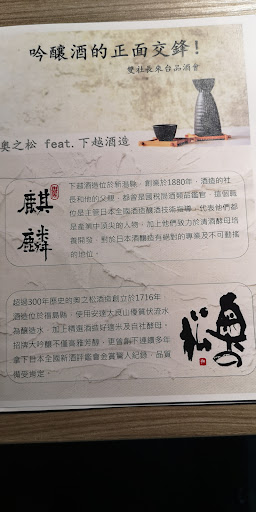 吟釀酒的正面交鋒!
雙社長來台品酒會
奧之松 feat.下越酒造
麒麟
下越酒造位於新潟縣，創業於1880年，酒造的社
長和他的父親，都曾是國稅局酒類鑑官，這個職
位是主管日本全國酒造釀酒技術指導，代表他們都
是產業中頂尖的人物，加上他們致力於清酒酵母培
養開發，對於日本酒釀造有絕對的專業及不可動搖
的地位。
超過300年歷史的奧之松酒造創立於1716年，
酒造位於福島縣，使用安達太良山優質伏流水
為釀造水，加上精選酒造好適米及自社酵母，
招牌大吟釀不僅高雅芳醇，更曾創下連續多年
拿下日本全國新酒評鑑會金賞驚人紀錄，品質
備受肯定。
奥の松